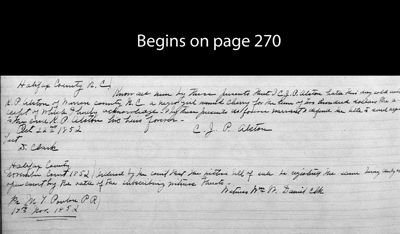 Begins on page 270
Halifax County N.C.
Know all men by these presents that I C.J.P. Alston have this day sold unto
K.P. Alston of Warren county N.C. a negro girl named Cherry for the sum of five hundred dollars the
receipt of which I hereby acknowledge by these presents do forever warrant & defend the title
to the said K.P. Alston his heirs forever.
Oct 22nd 1852 C. J. P. Alston
Test
D. Clark
Halifax County
November Court 1852 Ordered by the court that the written bill of sale be registered the same being duly
upon oath by the oath of the subscribing witness thereto.
Witness Wm W. Daniel Clk
Mr. M. T. Ponton P.R.
15th Nov. 1852